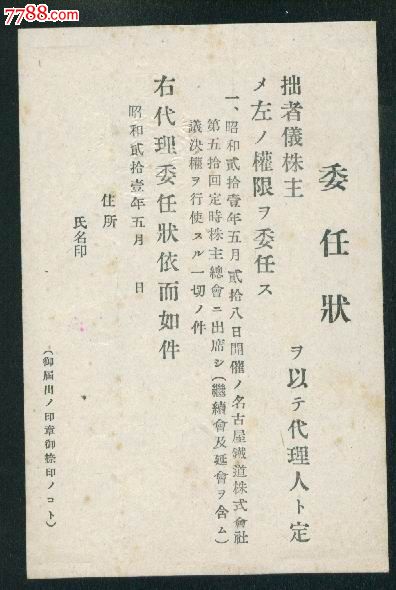 7788.com
委任狀
拙者儀株主　ヲ以テ代理人ト定
メ左ノ權限ヲ委任ス
一、昭和貳拾壹年五月貳拾八日開催ノ名古屋鐵道株式會社
第五拾回定時株主總會ニ出席シ(繼續會及延會ヲ含ム)
議決權ヲ行使スル一切ノ件
右代理委任狀依而如件
昭和貳拾壹年五月　日
住所
氏名印
(御屆出ノ印章御捺印ノコト)